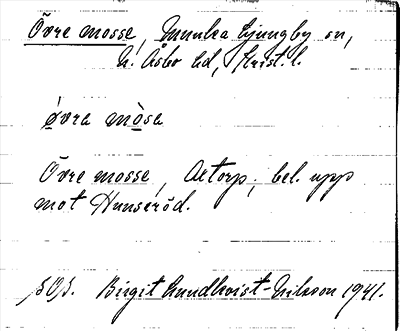 Övre mosse, Munka Ljungby sn,
N. Åsbo hd, Krist. l.
övra mòsa
Övre mosse, Aetorp; bel. upp
mot Hunseröd.
Birgit Lundkvist-Eriksson 1941.